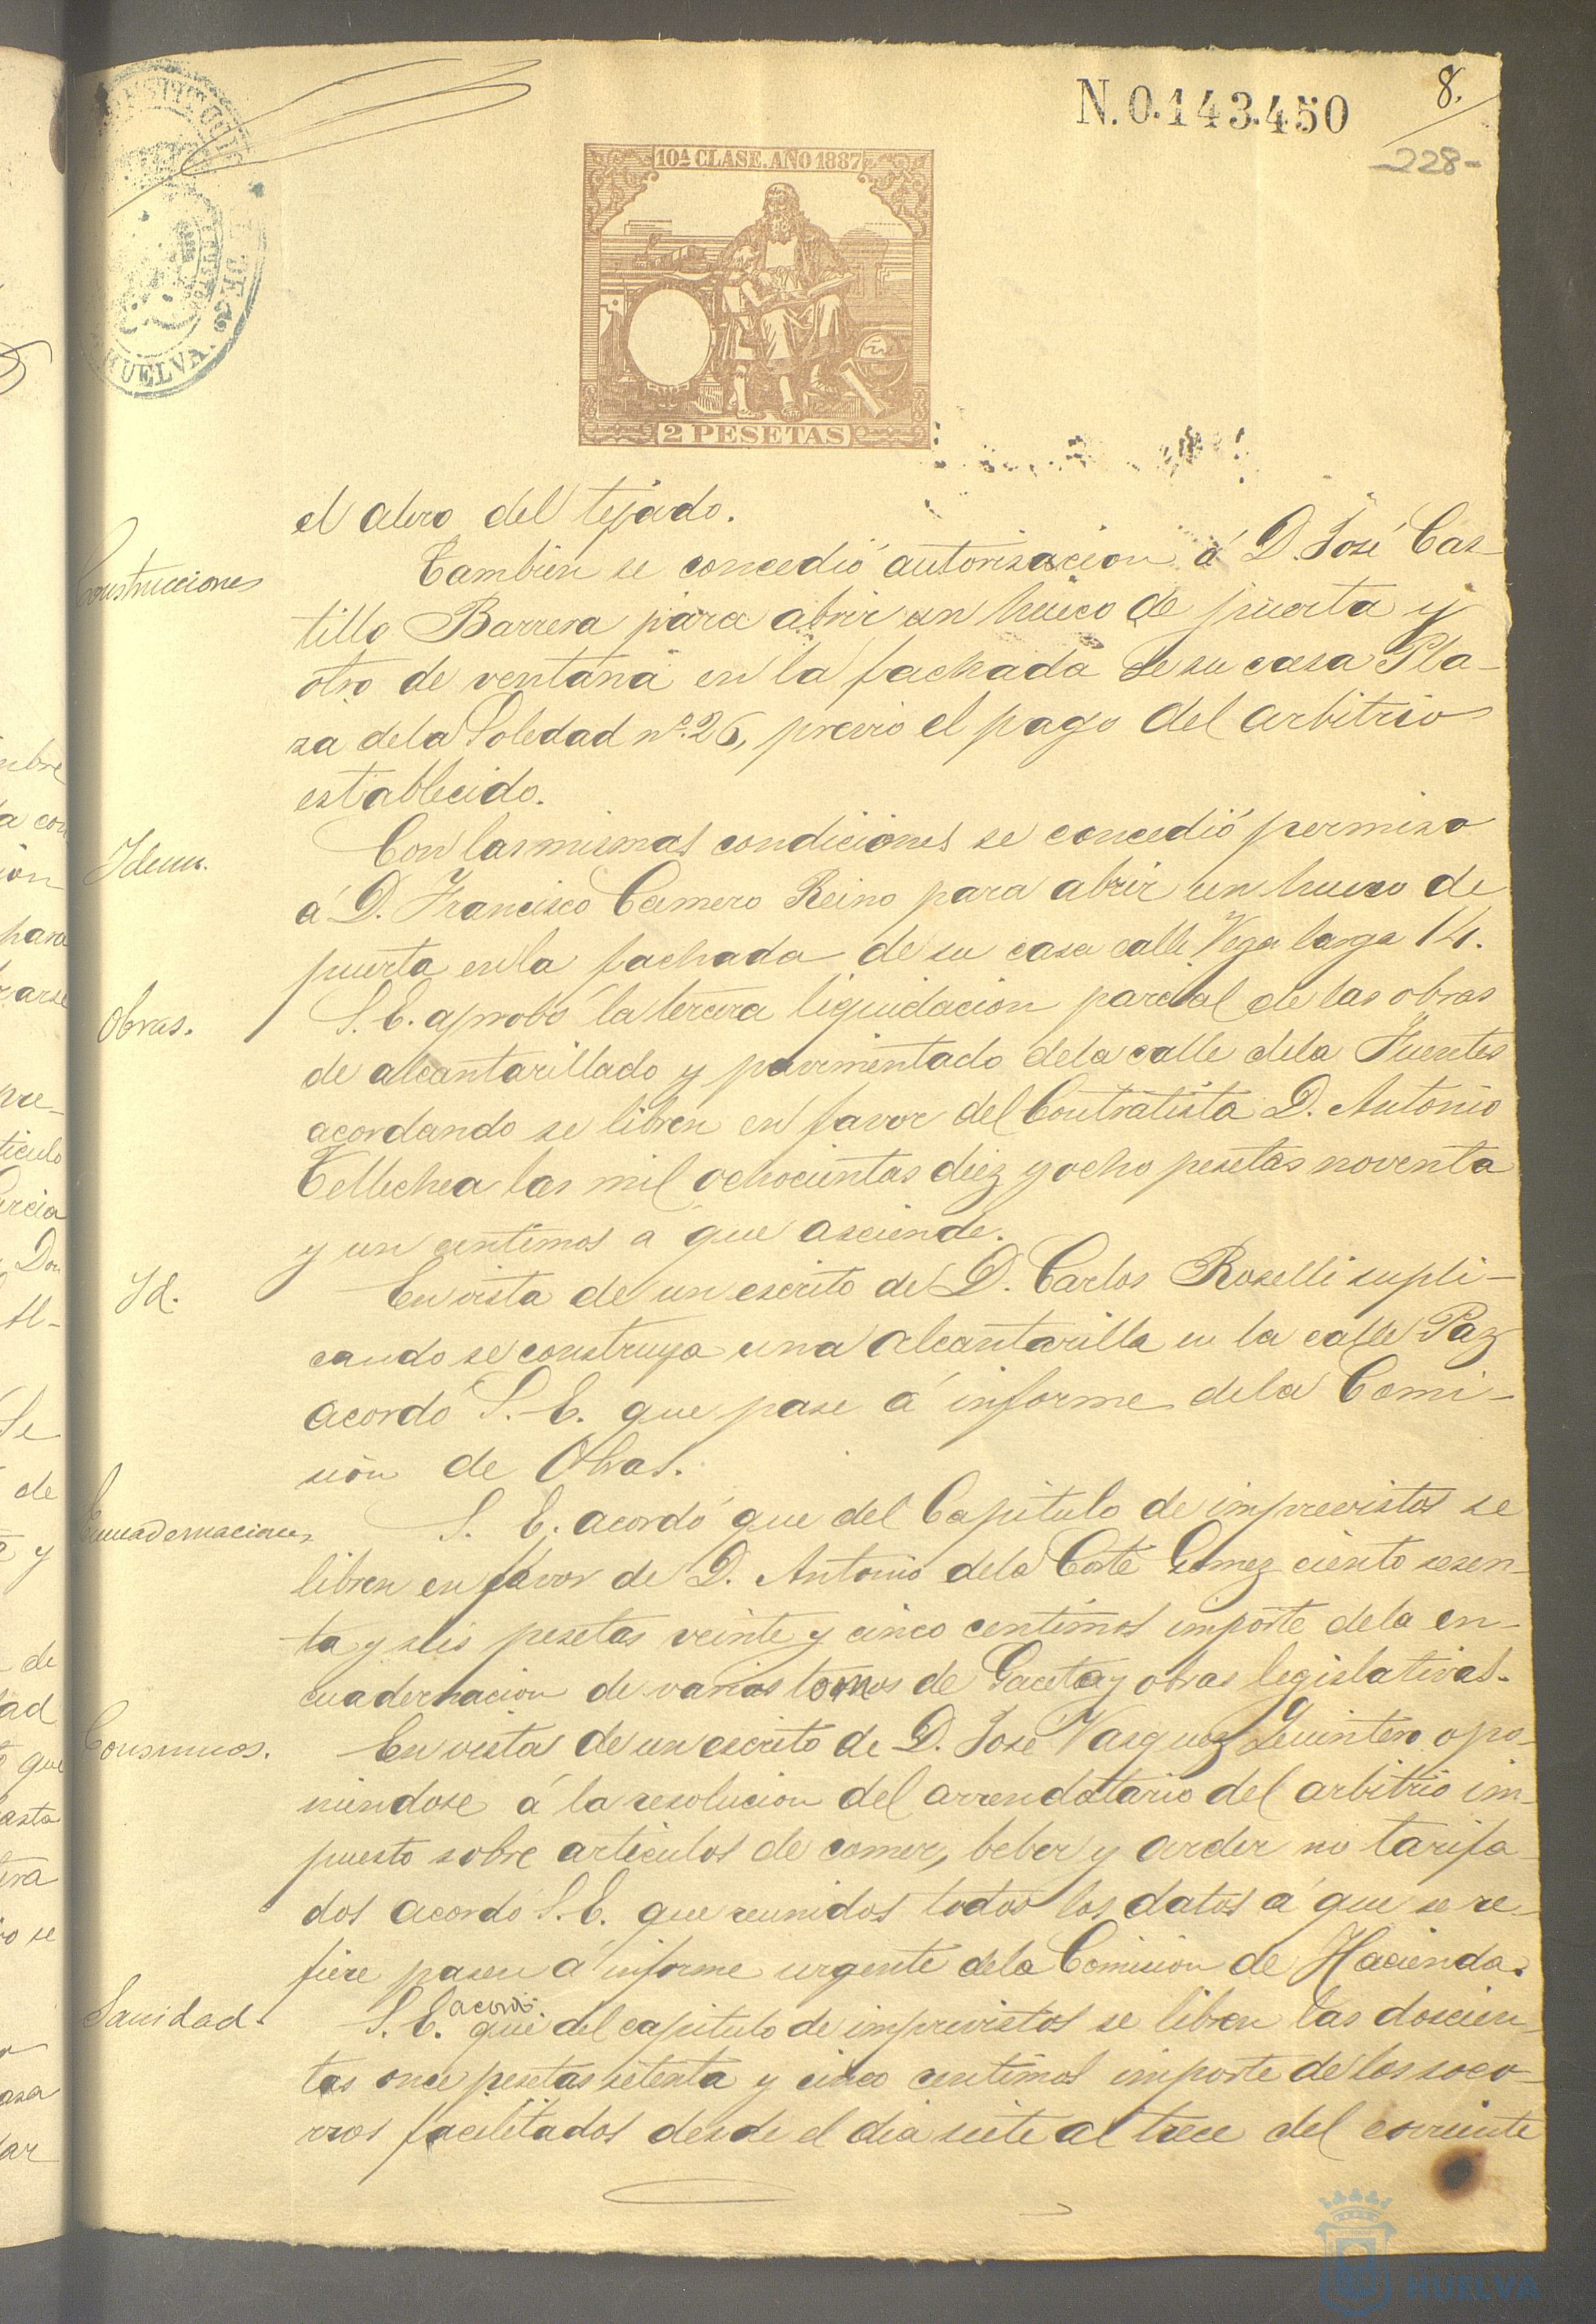 N.0.143.450
8.
-228-
10A CLASE. AÑO 1887
2 PESETAS
HUELVA.
el alero del tejado.
Construcciones
Tambien se concedió autorisacion á D. José Cas-
tillo Barrera para abrir un hueco de puerta y
otro de ventana en la fachada de su casa Pla-
za dela Soledad nº. 26, previo el pago del arbitrio
establecido.
Idem.
Con las mismas condiciones se concedió permiso
á D. Francisco Camero Reino para abrir un hueco de
puerta en la fachada de su casa calle Vega larga 14.
Obras.
S. E. aprobó la tercera liquidacion parcial de las obras
de alcantarillado y pavimentado dela calle dela Fuente
acordando se libren en favor del Contratista D. Antonio
Tellechea las mil ochocientas diez y ocho pesetas noventa
y un centimos a que asciende.
Id.
En vista de un escrito de D. Carlos Roselli supli-
cando se construya una alcantarilla en la calle Paz
acordó S. E. que pase á informe dela Comi-
sión de Obras.
Encuadernaciones
S. E. acordó que del Capitulo de imprevistos se
libren en favor de D. Antonio dela Corte Gomez ciento sesen-
ta y seis pesetas veinte y cinco centimos importe dela en-
cuadernacion de varios tomos de Gaceta y obras legislativas.
Consumos.
En vista de un escrito de D. José Vasquez Quintero opo-
niendose á la resolucion del arrendatario del arbitrio im-
puesto sobre articulos de comer, beber y arder no tarifa-
dos acordó S. E. que reunidos todos los datos á que se re-
fiere pasen á informe urgente dela Comision de Hacienda.
Sanidad.
S. E. acordó que del capitulo de imprevistos se libren las doscien-
tas once pesetas setenta y cinco centimos importe de los soco-
rros facilitados desde el dia siete al trece del corriente
HUELVA